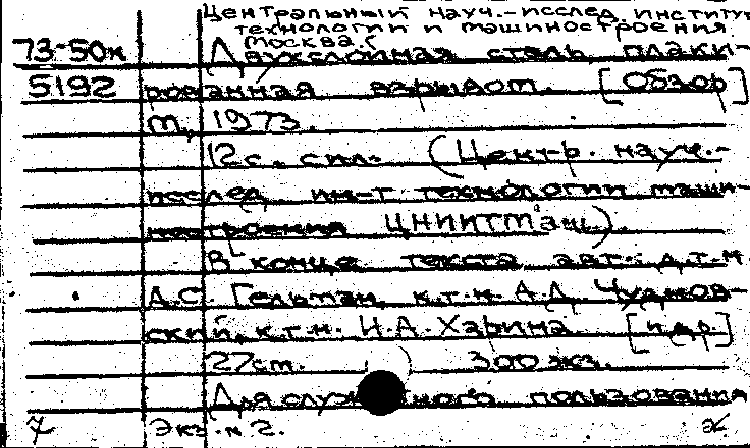 Центральный науч.-исслед. институт
технологии и машиностроения
Москва.
73-50к Двухслойная сталь, плаки-
5192 рованная взрывом. [Обзор]
М., 1973.
12 с. с ил. (Центр. науч.-
исслед. ин-т технологии маши-
ностроения ЦНИИТМаш).
В конце текста авт.: д.т.н.
А.С. Гельман, к.т.н. А.Д. Чуднов-
ский, к.т.н. И.А. Харина [и др.]
27 см. 300 экз.
Для служебного пользования
Экз. н 2.